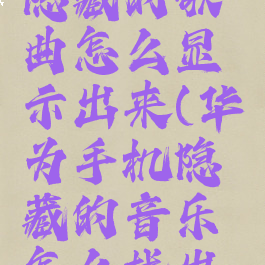 隐藏的歌
曲怎么显
示出来(华
为手机隐
藏的音乐
怎么找出